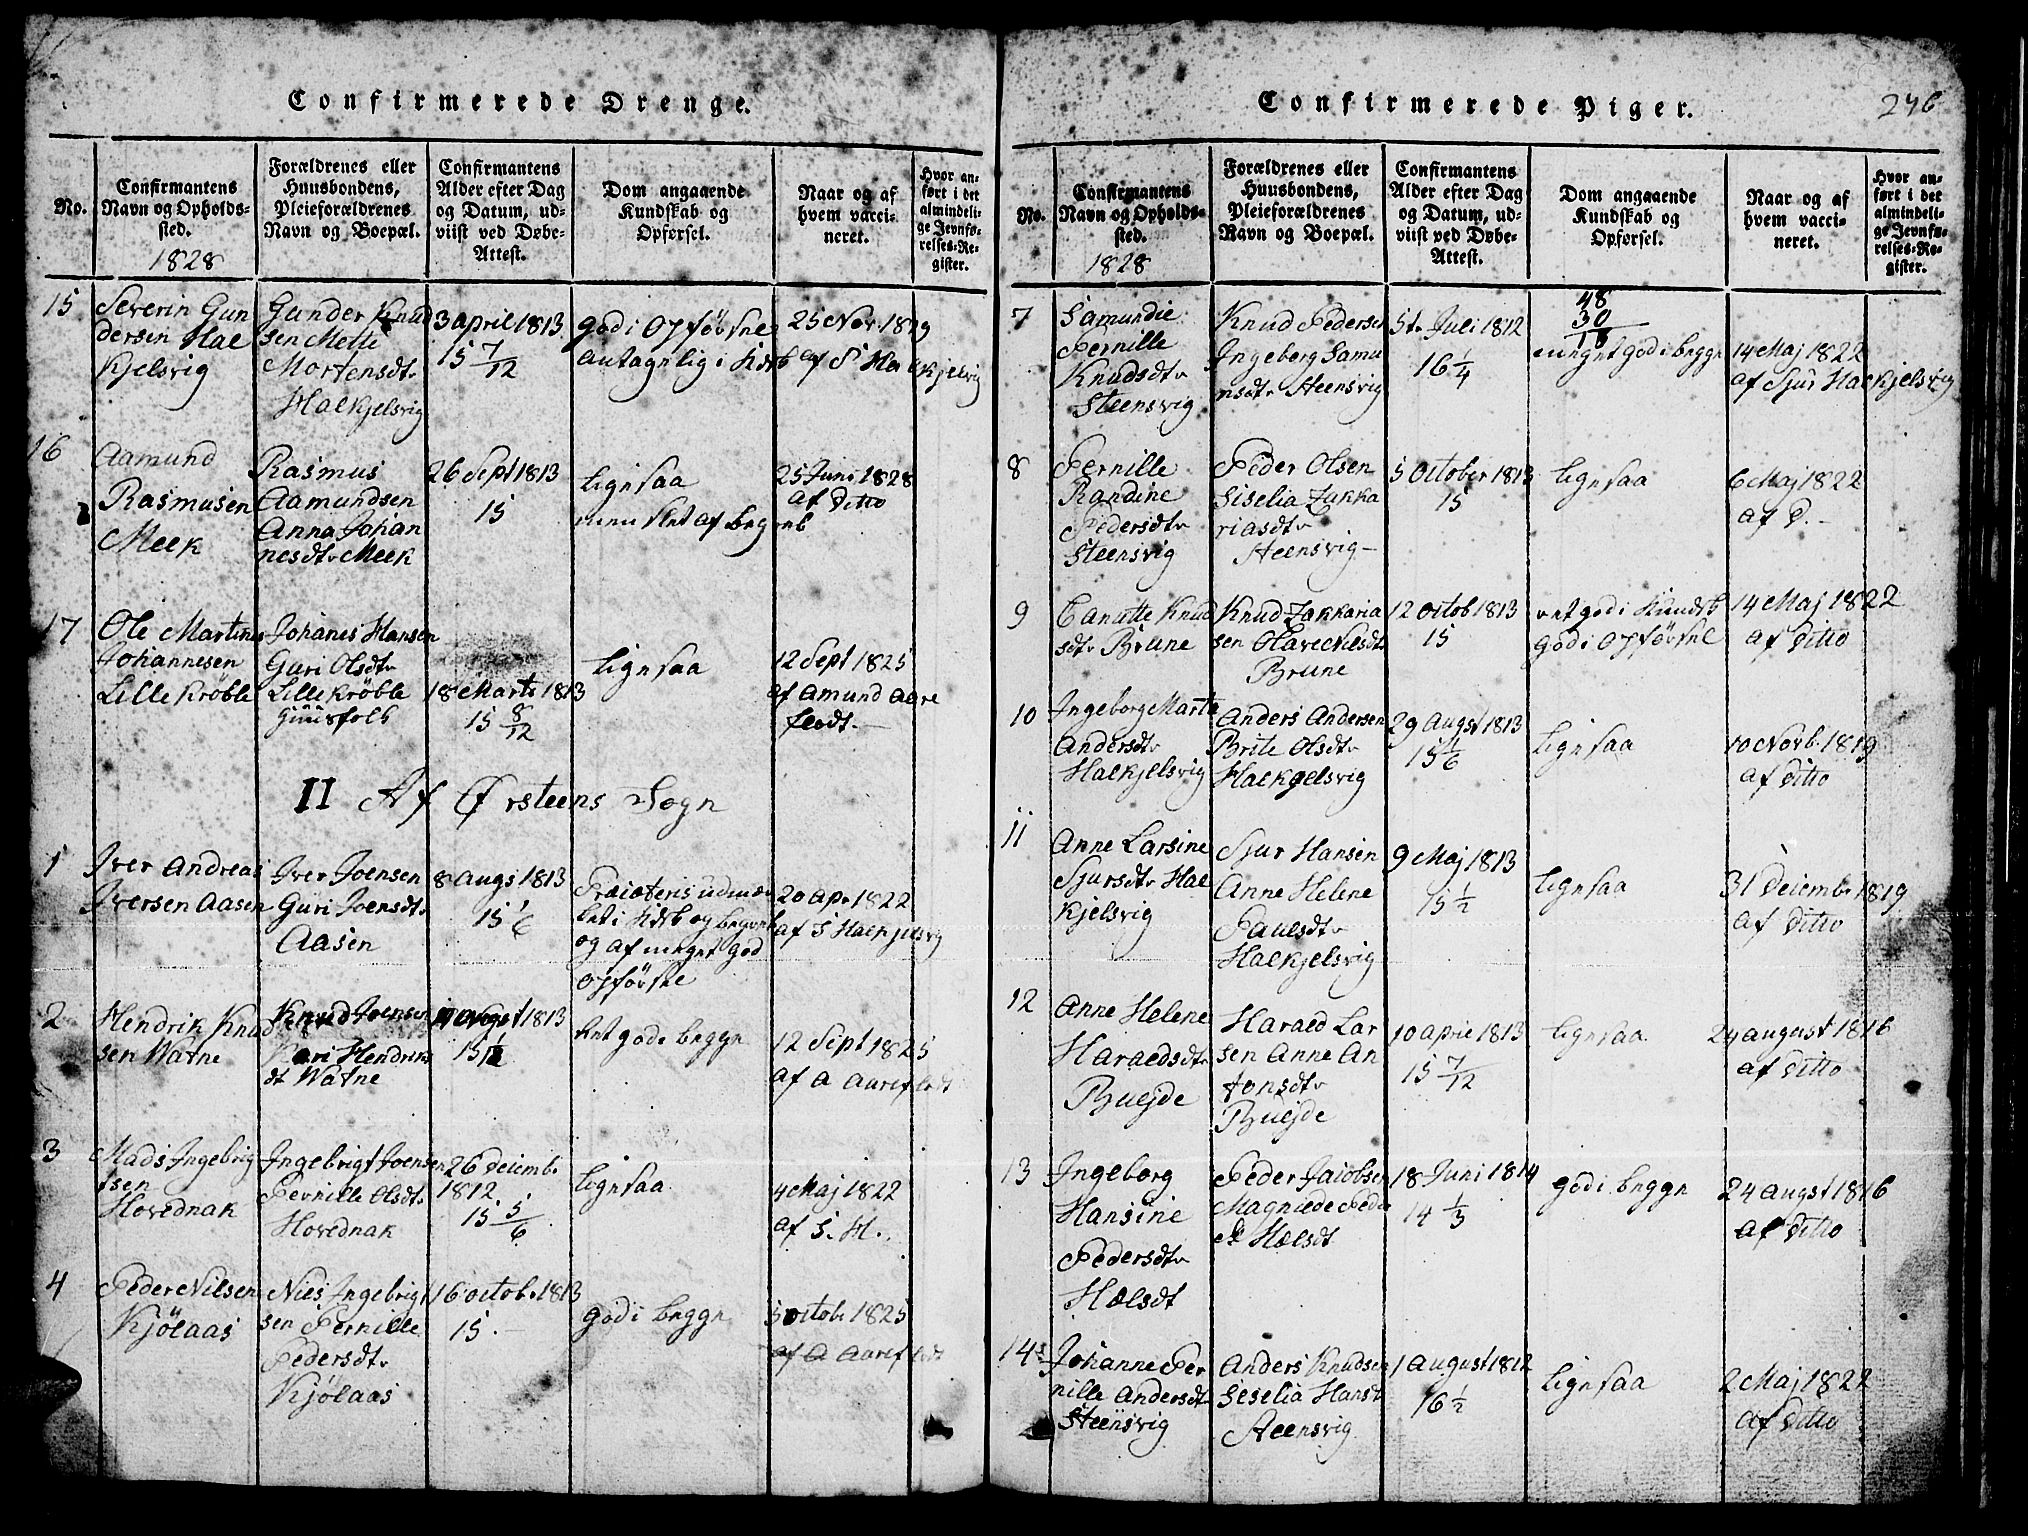 Confirmerede Drenge.
No.
Confirmantens
Navn og Opholds-
sted.
1828
Forældrenes eller
Huusbondens,
Pleieforældrenes
Navn og Boepæl.
Confirmantens
Alder efter Dag
og Datum, ud-
viist ved Døbe-
Attest.
Dom angaaende
Kundskab og
Opførsel.
Naar og af
hvem vacci-
neret.
Hvor an-
ført i det
almindeli-
ge Jevnfø-
relses-Re-
gister.
15
Severin Gun
dersen Hal
Kjelsvig
Gunder Knud
sen Mette
Mortensdtr
Halkjelsvig
3 april 1813
15 7/12
god i Opførsel
antagelig i Kdsb
25 Nov. 1819
af S Halkjelsvig
16
Aamund
Rasmusen
Meek
Rasmus
Aamundsen
Anna Johan
nesdtr Meek
26 Sept 1813
15
ligesaa
men slet af begreb
25 Juni 1828
af Ditto
17
Ole Martinus
Johannesen
Lille Krøble
Johanes Hansen
Guri Olsdtr
Lille Krøble
Huusfolk
18 Marts 1813
15 8/12
ligesaa
12 Sept 1825
af Amund Aare
flodt.
II Af Ørsteens Sogn
1
Iver Andreas
Iversen Aasen
Iver Joensen
Guri Joensdtr
Aasen
8 Augs 1813
15 1/6
Præceteris udmær
ket i Kdsb og begreb
og af meget god
opførsel
20 Apr 1822
af S Halkjelsvig
2
Hendrik Knud
sen Watne
Knud Joensen
Kari Hendriks
dt Watne
1813
ret god i begge
12 Sept 1825
af A Aareflodt
3
Mads Ingebrig
tsen
Hovednak
Ingebrigt Joensen
Pernille Olsdtr
Hovednak
26 Decembr
1812
15 5/6
ligesaa
4 Maj 1822
af S. H.
4
Peder Nilsen
Kjølaas
Niels Ingebrigt
sen Pernille
Pedersdtr
Kjølaas
16 octob. 1813
15.
god i begge
5 octob 1825
af A Aareflodt
Confirmerede Piger.
246
No.
Confirmantens
Navn og Opholds-
sted.
1828
Forældrenes eller
Huusbondens,
Pleieforældrenes
Navn og Boepæl.
Confirmantens
Alder efter Dag
og Datum, ud-
viist ved Døbe-
Attest.
Dom angaaende
Kundskab og
Opførsel.
Naar og af
hvem vacci-
neret.
Hvor an-
ført i det
almindeli-
ge Jevnfø-
relses-Re-
gister.
48
30
18
7
Samundie
Pernille
Knudsdtr
Steensvig
Knud Pedersen
Ingeborg Samu
nsdtr Steensvig
5te Juli 1812
16 1/4
meget god i begge
14 Maj 1822
af Sjur Halkjelsvig
8
Pernille
Randine
Pedersdtr
Steensvig
Peder Olsen
Siselia Zakka
riasdtr
Steensvig
5 October 1813
15
ligesaa
6 Maj 1822
af D.
9
Canutte Knud
sdtr Brune
Knud Zakkaria
sen Olave Nilsdtr
Brune
12 octob 1813
15
ret god i Kundsb
god i Opførsel
14 Maj 1822
af Ditto
10
Ingeborg Marta
Andersdtr
Halkjelsvig
Anders Andersen
Brite Olsdtr
Halkjelsvig
29 Augst 1813
15 1/6
ligesaa
10 Novb. 1819
af Ditto
11
Anne Larsine
Sjursdtr Hal
Kjelsvig
Sjur Hansen
Anne Helene
Paulsdtr
Halkjelsvig
9 Maj 1813
15 1/2
ligesaa
31 Decembr 1819
af Ditto
12
Anne Helene
Haraldsdtr
Buejde
Harald Lar
sen Anne An
tonsdtr
Buejde
10 april 1813
15 7/12
ligesaa
24 august 1816
af Ditto
13
Ingeborg
Hansine
Pedersdtr
Hølsdt
Peder Jacobsen
Magnilde Peder
Hølsdt
18 Juni 1814
14 1/3
god i begge
24 augst 1816
af Ditto
14
Johanne Per
nille Andersdtr
Steensvig
Anders Knudsen
Seselia Hansdt
Steensvig
1 August 1812
16 1/2
ligesaa
2 Maj 1822
af Ditto